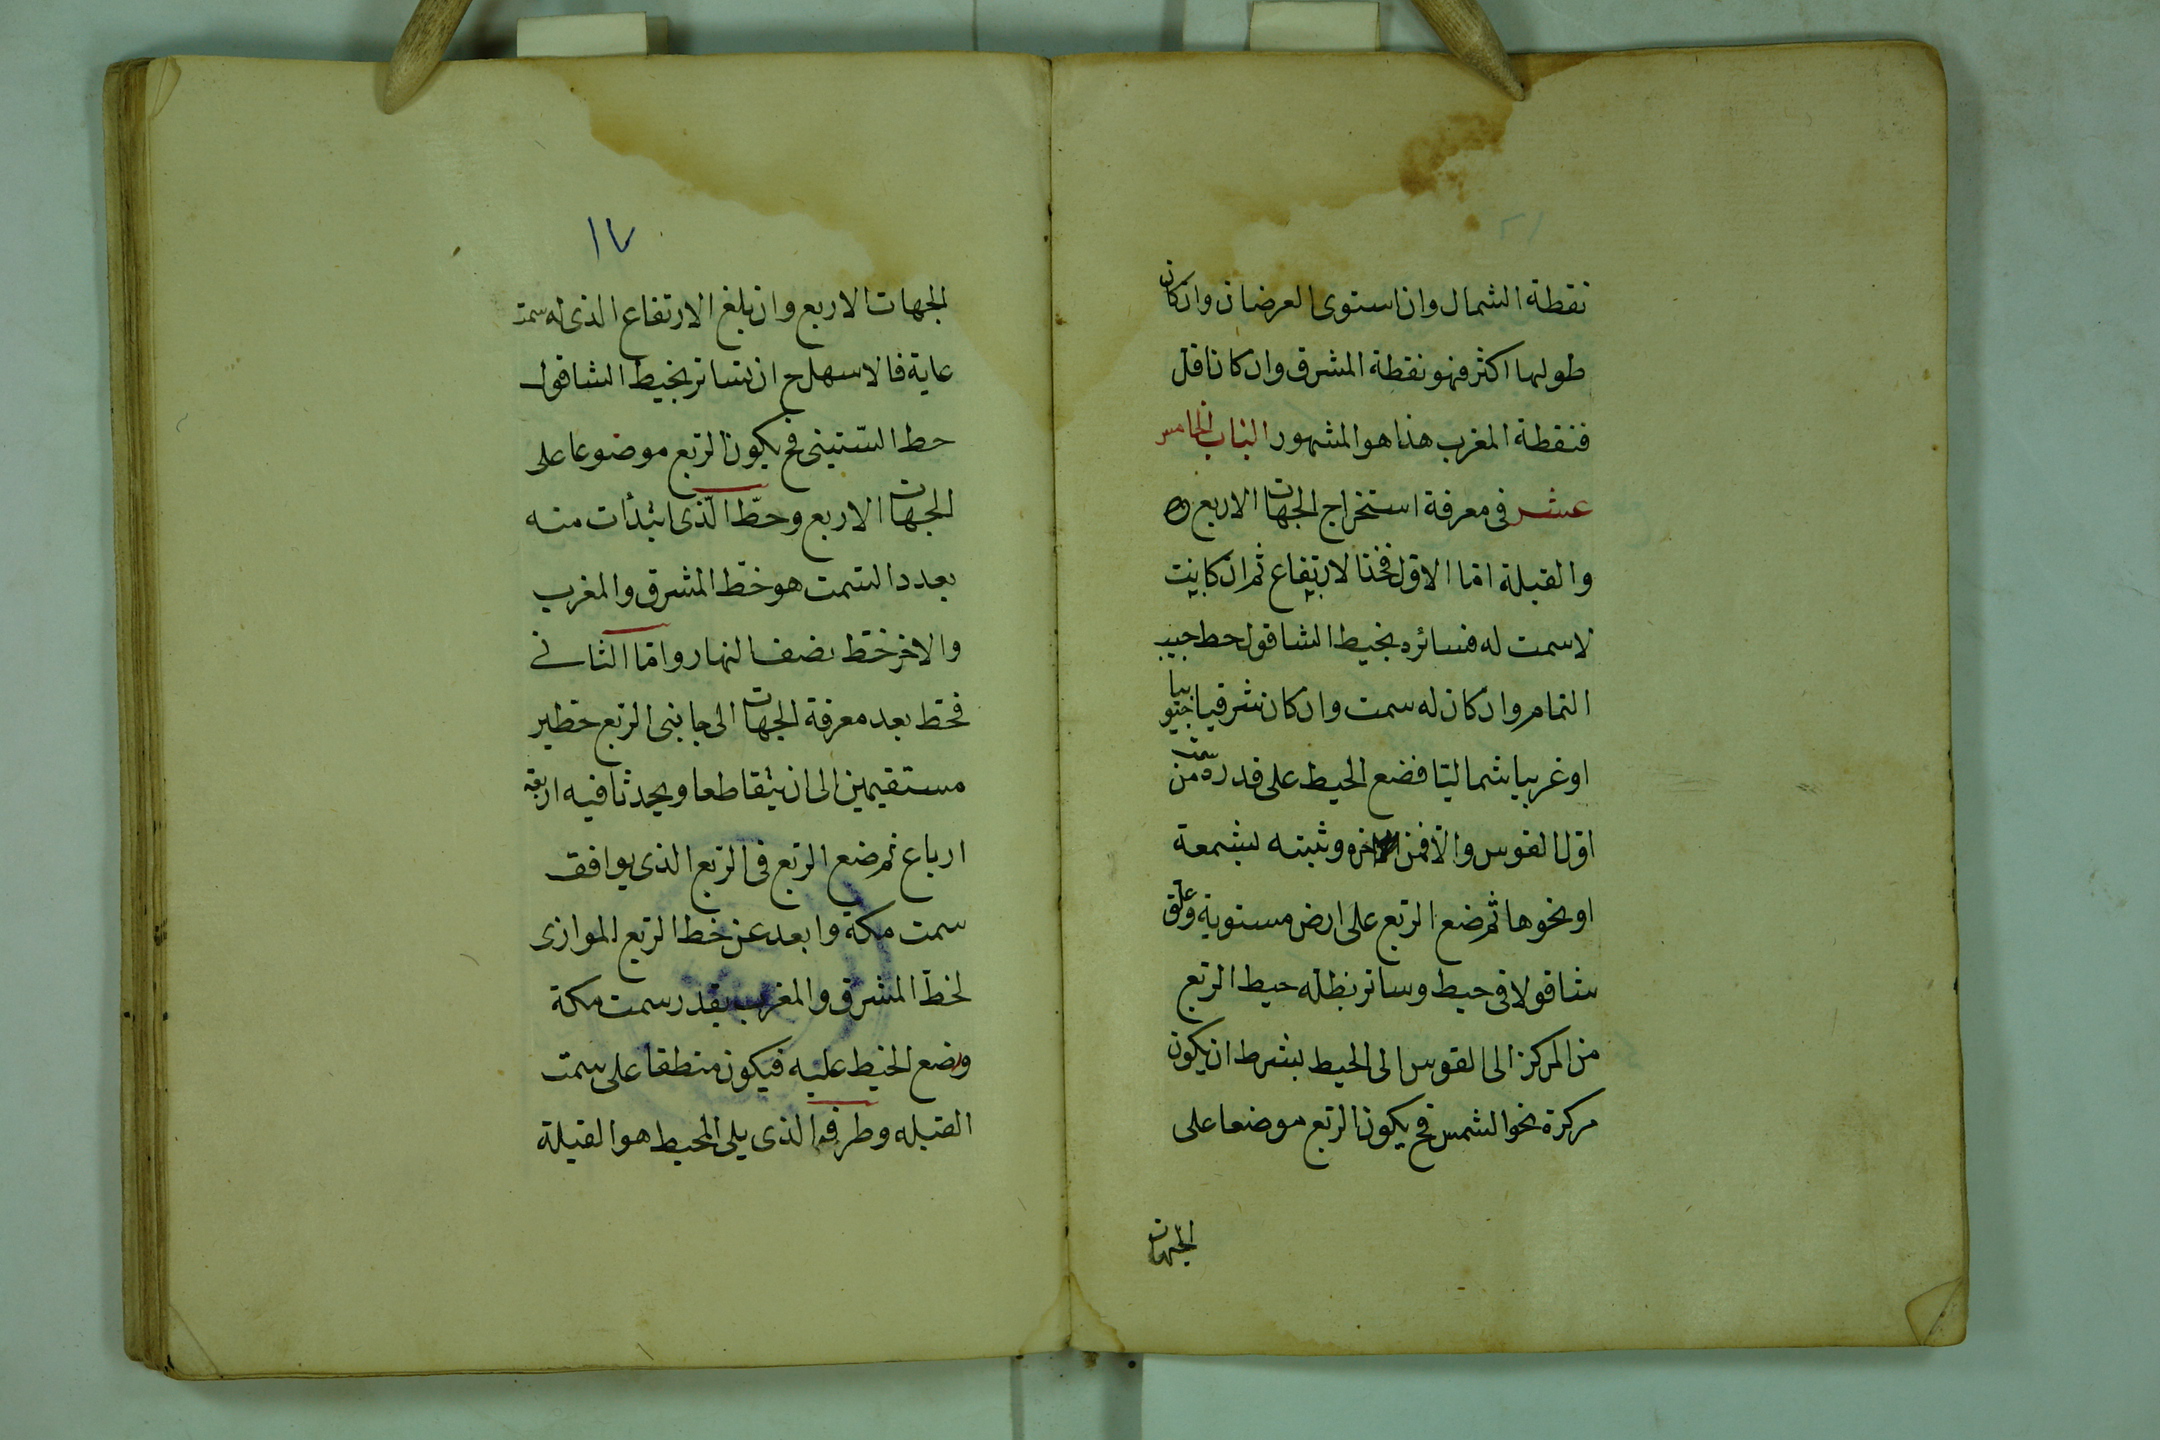 نقطة الشمال وان استوى العرضان وان كان
طولها اكثر فهو نقطة المشرق وان كان اقل
فنقطة المغرب هذا هو المشهور الباب الخامس
عشر فى معرفة استخراج الجهات الاربع
والقبلة اما الاول فخذ الارتفاع ثم ان كانت
لاسمت له فسائره بخيط الشاقول حط جيب
التمام وان كان له سمت وان كان شرقيا جنوبيا
او غربيا شماليا فضع الخيط على قدر سمته من
اول القوس والا فمن اخره وثبته بشمعة
او نحوها ثم ضع الربع على ارض مستوية وعلق
شاقولا فى خيط وساتر بظله خيط الربع
من المركز الى القوس الى المحيط بشرط ان يكون
مركزه نحو الشمس فح يكون الربع موضعا على
الجهات
١٧
الجهات الاربع وان بلغ الارتفاع الذى له سمت
غاية فالاسهل ح ان تساتر بخيط الشاقول
حط الستينى فح يكون الربع موضوعا على
الجهات الاربع وحط الذى ابتدأت منه
بعدد السمت هو خط المشرق والمغرب
والاخر خط نصف النهار واما الثانى
فخط بعد معرفة الجهات الى جانبى الربع خطين
مستقيمين الى ان يتقاطعا ويحدثا فيه اربعة
ارباع ثم ضع الربع فى الربع الذى يوافق
سمت مكة وابعد عن خط الربع الموازى
لخط المشرق والمغرب بقدر سمت مكة
وضع الخيط عليه فيكون منطقا على سمت
القبله وطرفه الذى يلى المحيط هو القبلة